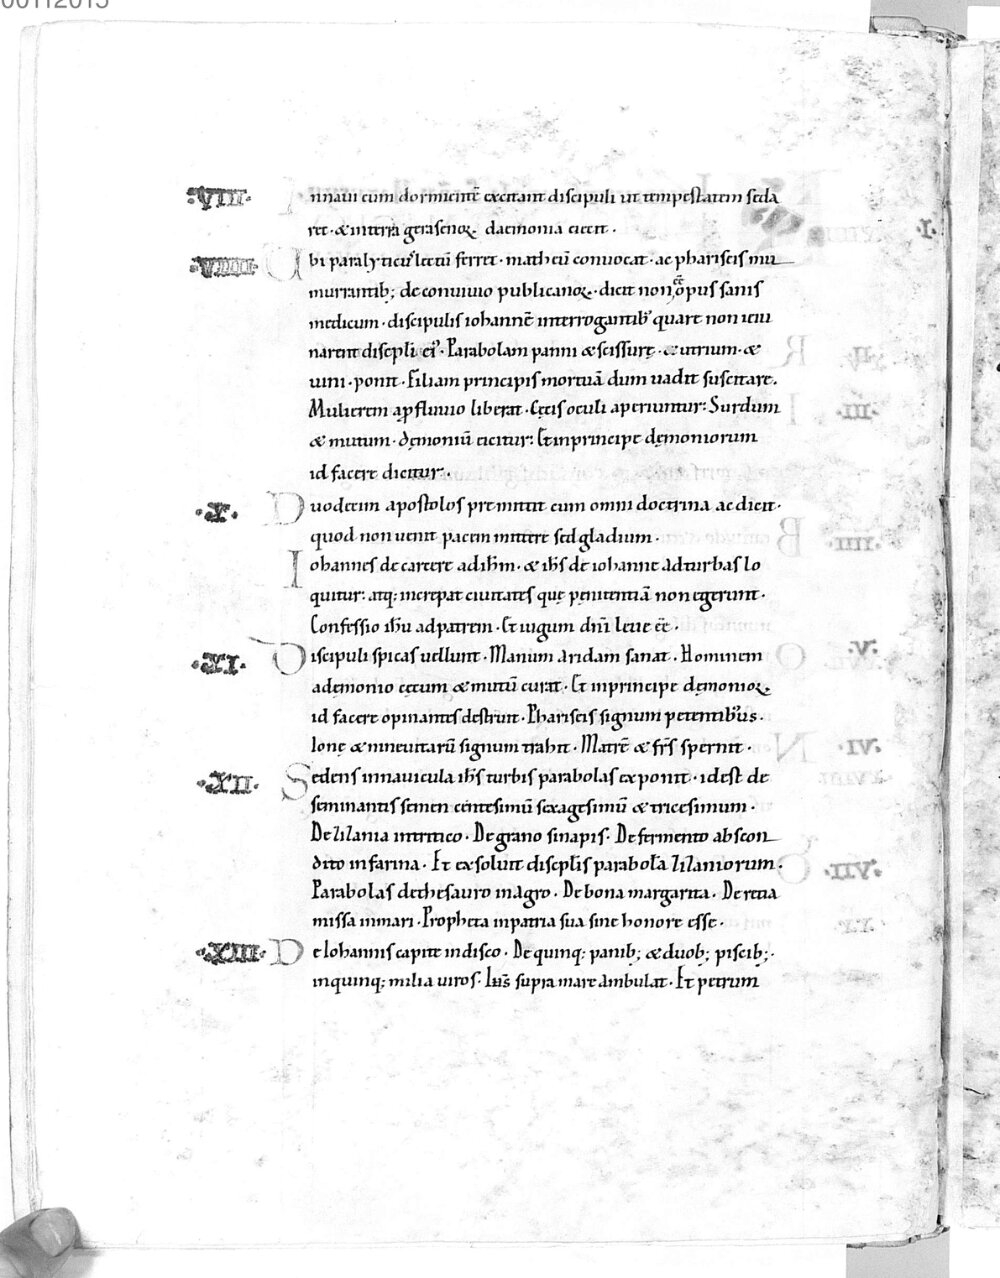 00112015
·VIII· nnaui eum dormientē excitant discipuli ut tempestatem seda
ret · & interra gerasenoꝝ daemonia eiecit ·
·VIIII· Ubi paralyticu' lectū ferret · matheū conuocat · ac phariseis mu
murrantib; de conuiuio publicanoꝝ · dicit non ēē opus sanis
medicum · discipulis iohannē interrogantib' quare non ieiu
narent discpli ei' · Parabolam panni & scissurę · & utrium · &
uini · ponit · Filiam principis mortuā dum uadit suscitare.
Mulierem a ꝓfluuio liberat · Cęcis oculi aperiuntur: Surdum
& mutum · dęmoniū eicitur: Et inprincipe dęmoniorum
id facere dicitur ·
·X· Duodecim apostolos premittit cum omni doctrina ac dicit ·
quod non uenit pacem mittere sed gladium ·
Iohannes de carcere ad ihm̄ · & ihs̄ de iohanne ad turbas lo
quitur: atq; increpat ciuitates quę pęnitentiā non egerunt ·
Confessio ihū ad patrem · Et iugum dnī leue ēē ·
·XI· Discipuli spicas uellunt · Manum aridam sanat · Hominem
ademonio cęcum & mutū curat · Et inprincipe dęmonioꝝ
id facere opinantes destruit · Phariseis signum petentibus ·
Ionę & nineuitarū signum trahit · Matrē & frs̄ spernit ·
·XII· Sedens innauicula ihs̄ turbis parabolas exponit · idest de
seminantis semen centesimū sexagesimū & tricesimum ·
De zizania intritico · De grano sinapis · De fermento abscon
dito in farina · Et exsoluit discplis parabola zizaniorum ·
Parabolas dethesauro inagro · De bona margarita · De retia
missa inmari · Propheta inpatria sua sine honore esse ·
·XIII· De Iohannis capite indisco · De quinq; panib; & duob; piscib; ·
inquinq; milia uiros · Ihs̄ supra mare ambulat · Et petrum